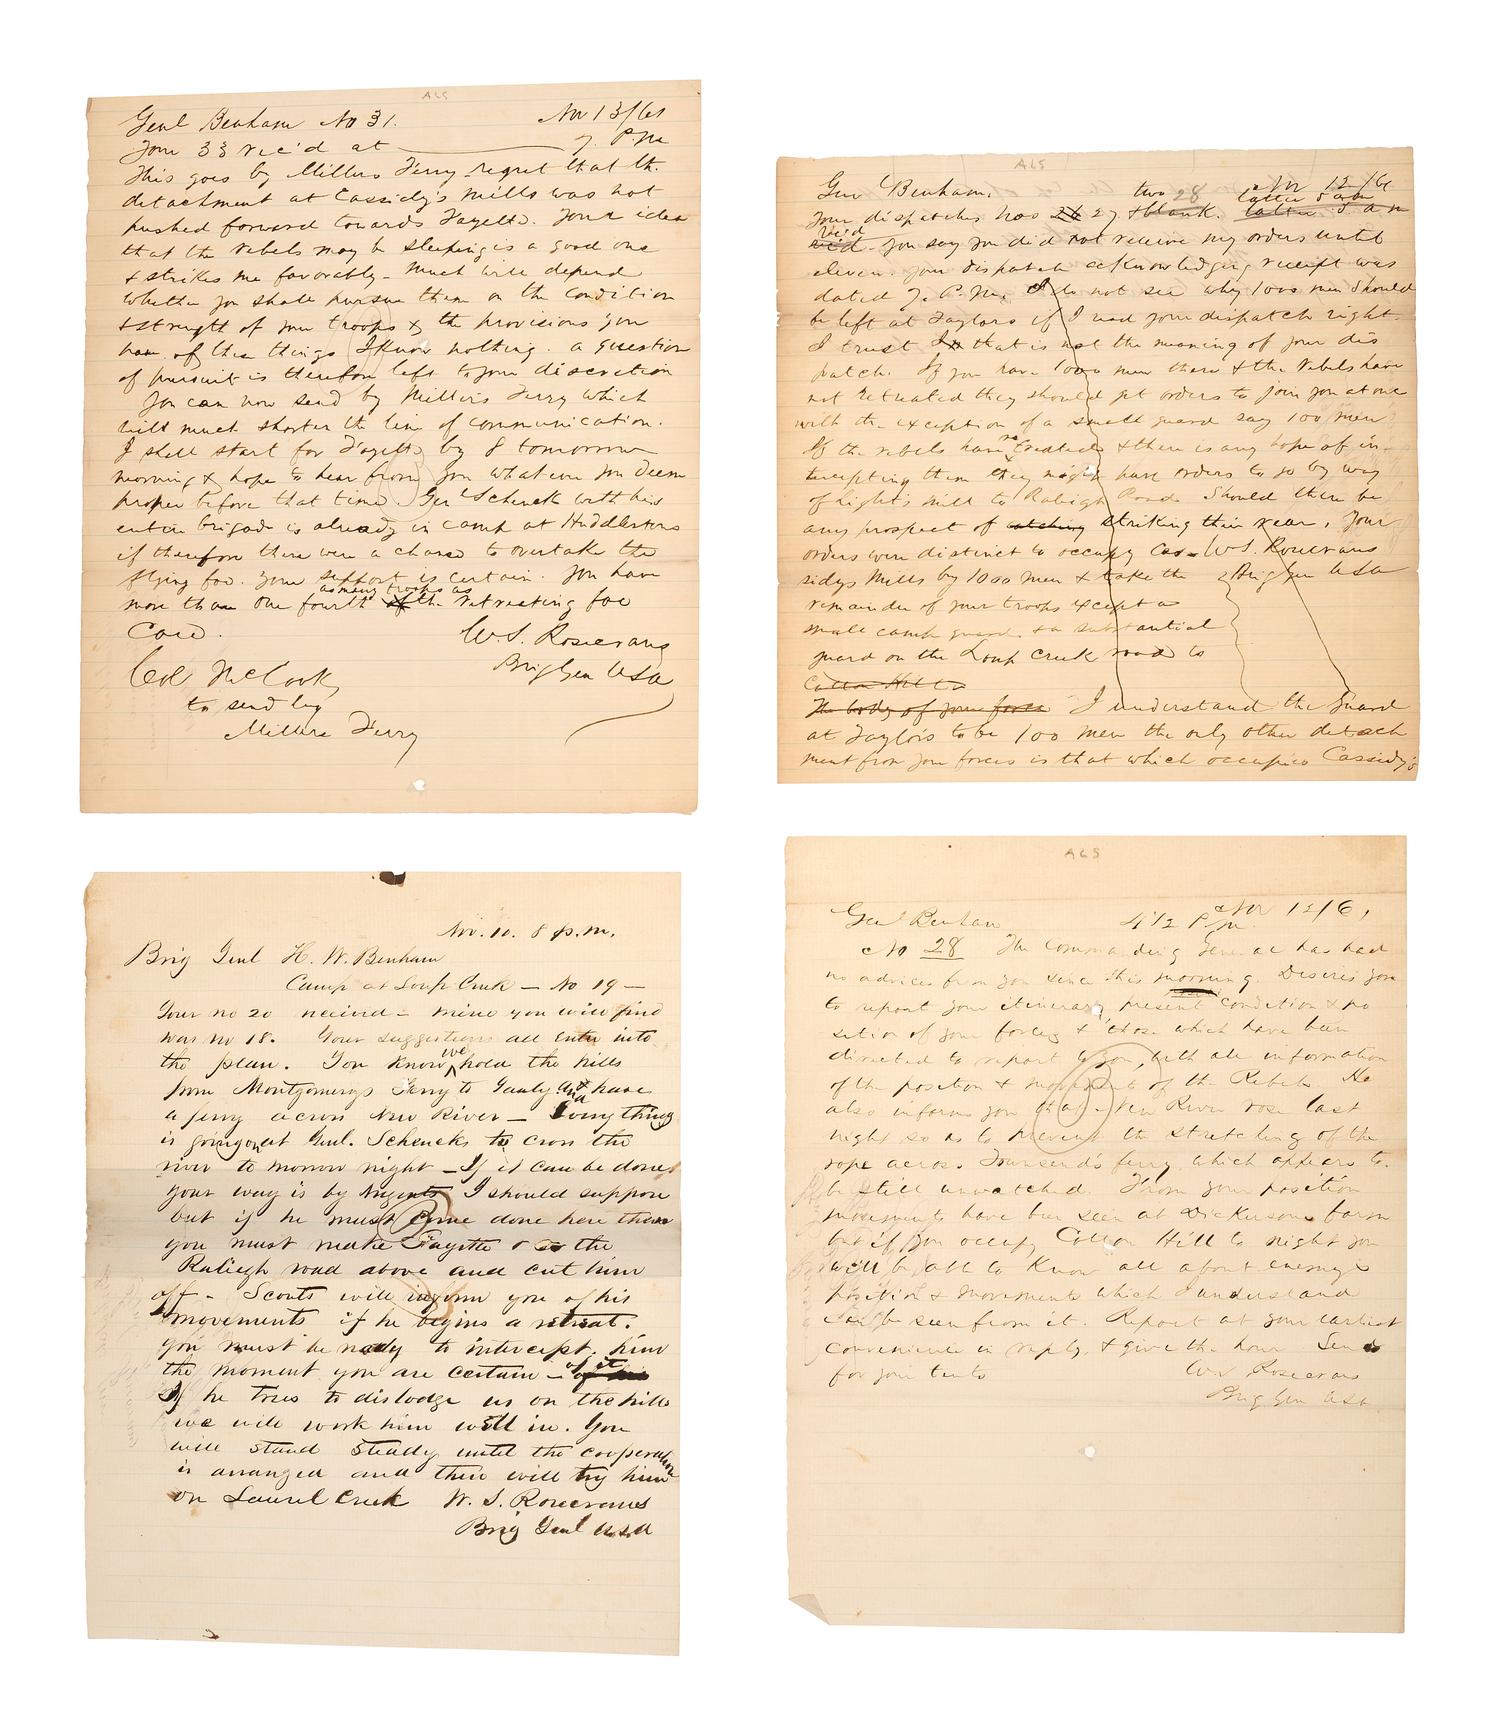 ALS
Genl Benham No 31. Nov 13/61
Your 33 rec'd at 7. P.M
This goes by Millers Ferry regret that the
detachment at Cassidy's Mills was not
pushed forward towards Fayette. Your idea
that the rebels may be sleeping is a good one
& strikes me favorably - Much will depend
whether you shall pursue them on the condition
& strength of your troops & the provisions you
have. of these things I know nothing. a question
of pursuit is therefore left to your discretion
You can now send by Millers Ferry which
will much shorten the line of communication.
I shall start for Fayette by 8 tomorrow
morning & hope to hear from you what ever you deem
proper before that time. Genl Schenck with his
entire brigade is already in camp at Huddlestons
if therefore there were a chance to overtake the
flying foe. Your support is certain. You have
more than one fourth as many troops as the retreating foe
Card.
W. S. Rosecrans
Brig Gen USA
Col McCook
to send by
Millers Ferry
ALS
Genl Benham. Nov 12/61
Your dispatches Nos 26 27 & blank. two 28 latter 5 a m latter 5. a m
rec'd rec'd. You say you did not receive my orders until
eleven. Your dispatch acknowledging receipt was
dated 7. P.M. I do not see why 1000 men should
be left at Taylors if I read your dispatch right.
I trust that is not the meaning of your dis
patch. If you have 1000 men there & the Rebels have
not retreated they should get orders to join you at once
with the exception of a small guard say 100 men
If the rebels have retreated & there is any hope of in-
tercepting them they might have orders to go by way
of Light's mill to Raleigh Road. Should there be
any prospect of catching striking their rear. Your
orders were distinct to occupy Cas- W S. Rosecrans
sidys Mills by 1000 men & take the Brig Gen USA
remainder of your troops except a
small camp guard & a substantial
guard on the Loup Creek road to
Cotton Hill to
The body of your force I understand the guard
at Taylors to be 100 men the only other detach
ment from your forces is that which occupies Cassidy's
Nov. 10. 8 p.m.
Brig Genl H. W. Benham
Camp at Loup Creek - No 19 -
Your no 20 received - mine you will find
was no 18. Your suggestions all enter into
the plan. You know we hold the hills
from Montgomerys Ferry to Gauly and have
a ferry across New River - Everything
is going on at Genl. Schencks to cross the
river to morrow night - If it can be done
your way is by Nugents I should suppose
but if he must come done here then
you must make Fayette or the
Raleigh road above and cut him
off - Scouts will inform you of his
movements if he begins a retreat.
You must be ready to intercept him
the moment you are certain - of it
If he tries to dislodge us on the hills
we will work him well in. You
will stand steady until the cooperation
is arranged and then will try him
on Laurel Creek W. S. Rosecrans
Brig Genl U.S.A
ALS
Genl Benham 4 1/2 P.m. Nov 12/61
No 28 The Commanding General has had
no advices from you since this morning. Desires you
to report your itinerary, present condition & po
sition of your forces & those which have been
directed to report to you, with all information
of the position & movement of the Rebels. He
also informs you that New River rose last
night so as to prevent the stretching of the
rope across Townsend's ferry, which appears to
be still unwatched. From your position
movements have been seen at Dickersons farm
but if you occupy Cotton Hill to night you
will be able to know all about enemy's
position & movements which I understand
can be seen from it. Report at your earliest
convenience in reply, & give the hour Send
for your tents W S Rosecrans
Brig Gen USA